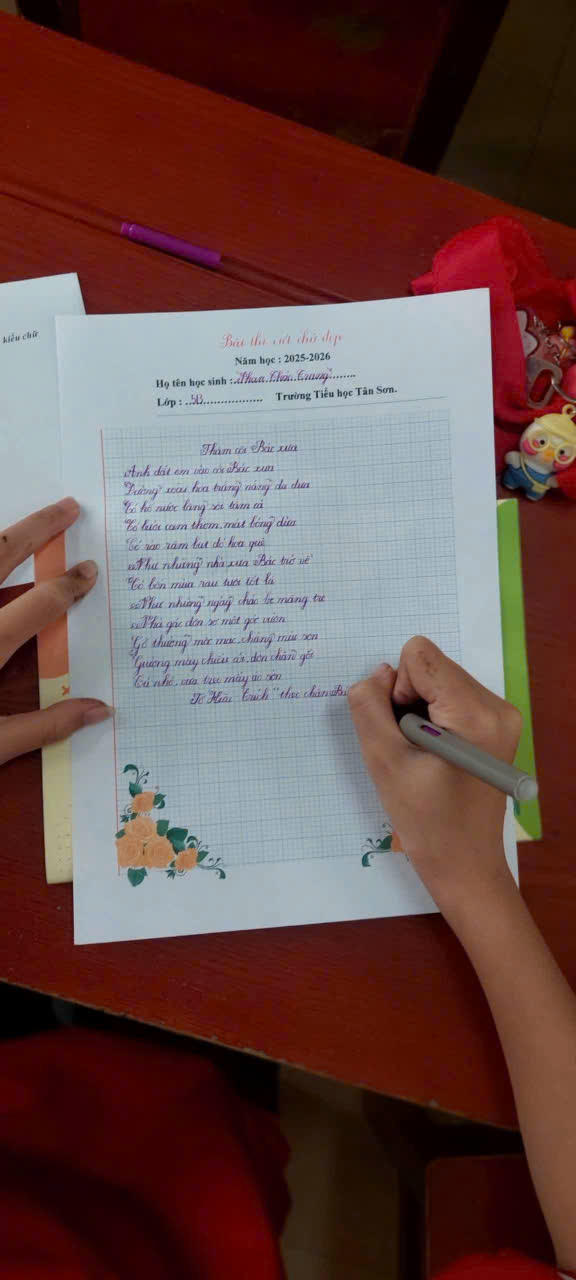 kiểu chữ
Bài thi viết chữ đẹp
Năm học : 2025-2026
Họ tên học sinh : Phan Thảo Trang
Lớp : 5B Trường Tiểu học Tân Sơn.
Thăm cõi Bác xưa
Anh dắt em vào cõi Bác xưa
Đường xoài hoa trắng nắng đu đưa
Có hồ nước lặng sôi tăm cá
Có bưởi cam thơm, mát bóng dừa
Có rào râm bụt đỏ hoa quê
Như những nhà xưa Bác trở về
Có bốn mùa rau tươi tốt lá
Như những ngày cháo bẹ măng tre
Nhà gác đơn sơ một góc vườn
Gỗ thường mộc mạc, chẳng mùi sơn
Giường mây chiếu cói, đơn chăn gối
Tủ nhỏ, vừa treo mấy áo sờn
Tố Hữu "trích" theo chân Bá